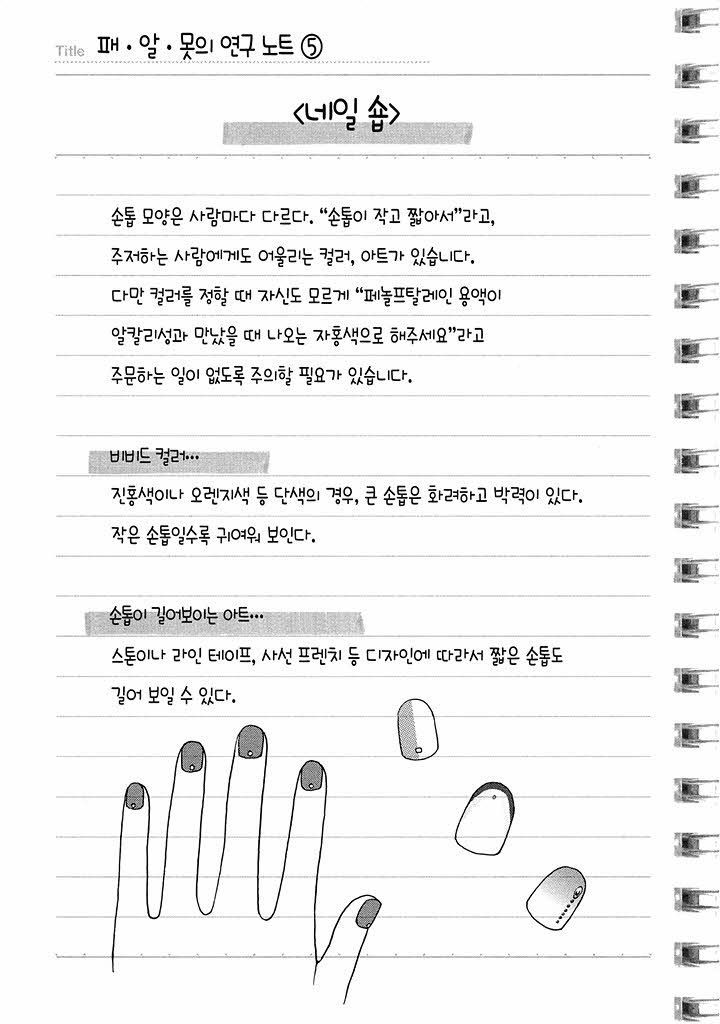 Title 패·알·못의 연구 노트 ⑤
<네일 숍>
손톱 모양은 사람마다 다르다. “손톱이 작고 짧아서”라고,
주저하는 사람에게도 어울리는 컬러, 아트가 있습니다.
다만 컬러를 정할 때 자신도 모르게 “페놀프탈레인 용액이
알칼리성과 만났을 때 나오는 자홍색으로 해주세요”라고
주문하는 일이 없도록 주의할 필요가 있습니다.
비비드 컬러…
진홍색이나 오렌지색 등 단색의 경우, 큰 손톱은 화려하고 박력이 있다.
작은 손톱일수록 귀여워 보인다.
손톱이 길어보이는 아트…
스톤이나 라인 테이프, 사선 프렌치 등 디자인에 따라서 짧은 손톱도
길어 보일 수 있다.